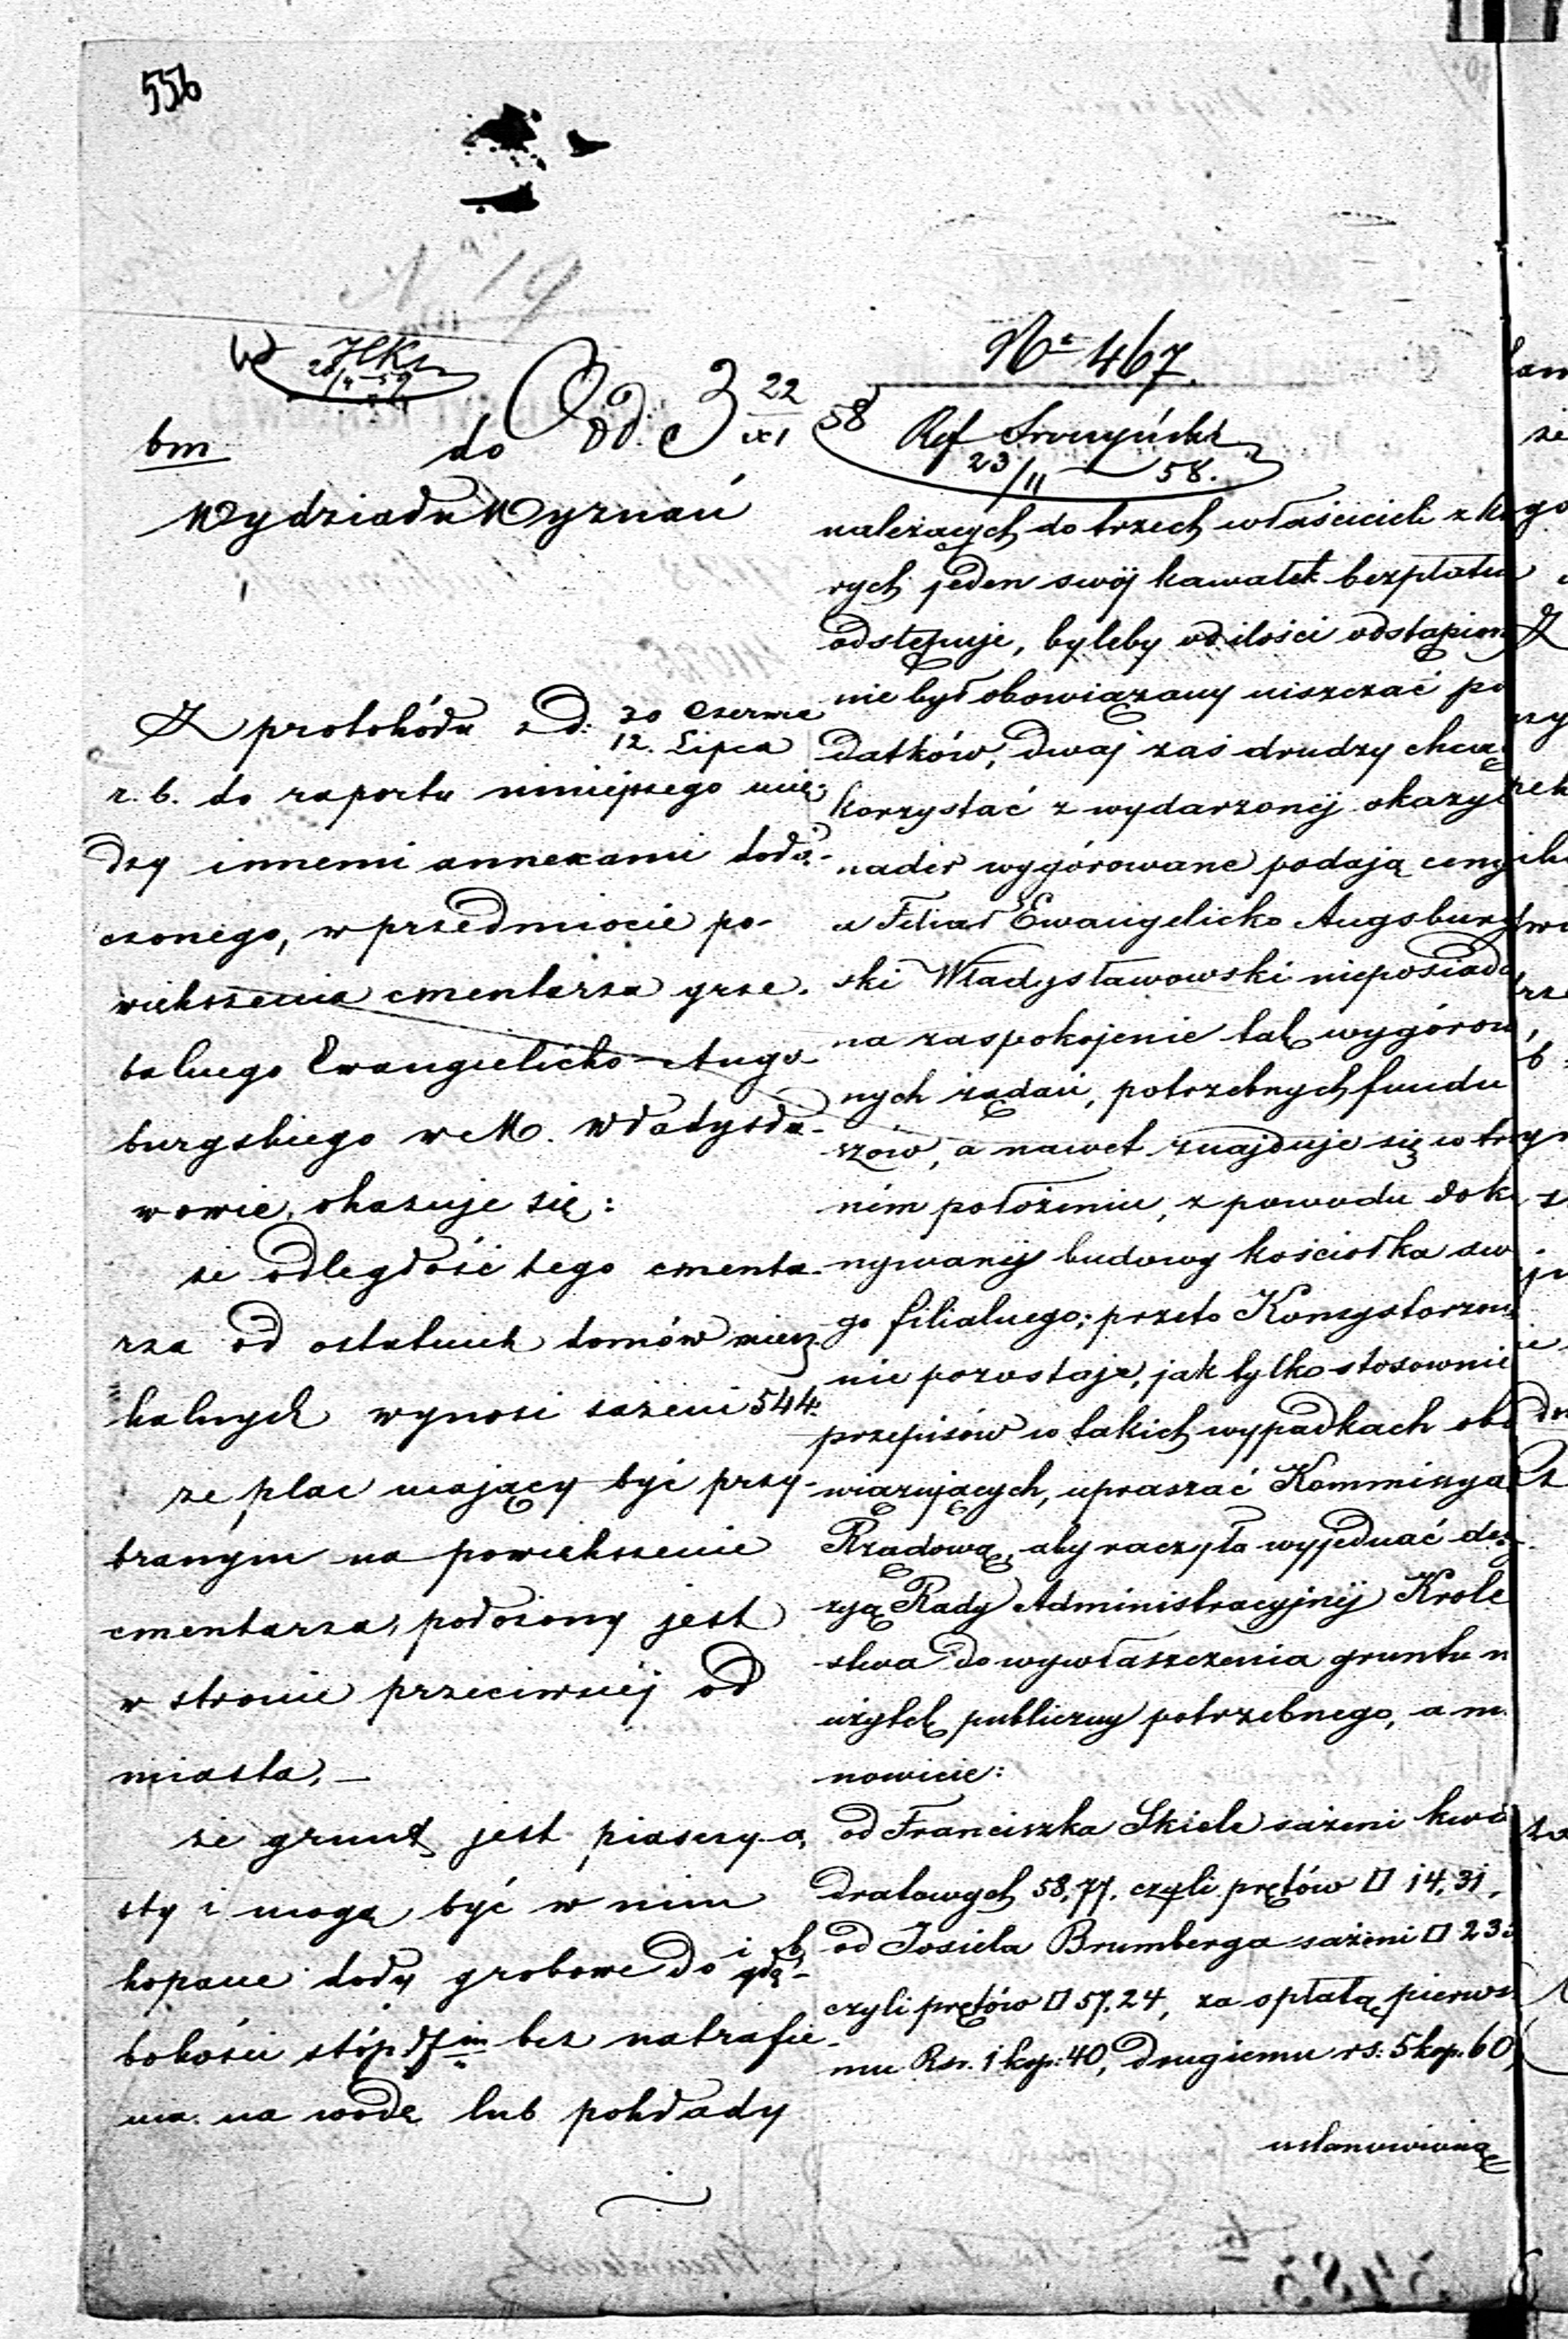 556
No 19
bm
do
Wydziału Wyznań
Z protokółu z d: 30 Czerwca
12. Lipca
r. b. do raportu niniejszego mię-
dzy innemi annexami dołą-
czonego, w przedmiocie po-
większenia cmentarza grze-
balnego Ewangielicko-Augs-
burgskiego w M. Władysła-
wowie, okazuje się:
że odległość tego cmenta-
rza od ostatnich domów miesz-
kalnych wynosi sążeni 544.
że plac mający być przy-
branym na powiększenie
cmentarza, położony jest
w stronie przeciwnéj od
miasta, —
że grunt jest piasczy-
sty i mogą być w nim
kopane doły grobowe do głę-
bokości stóp 7 bez natrafie-
nia na wodę lub pokłady
No 467
Od. 22
XI 58
Ref
23/11 58.
należących do trzech właścicieli z któ
rych jeden swój kawałek bezpłatn
odstępuje, byleby od ilości odstąpion
nie był obowiązany uiszczać po
datków, dwaj zaś drudzy chcąc
korzystać z wydarzonéj okazyi
nader wygórowane podają ceny
a Filiał Ewangelicko Augsburg
ski Władysławowski nieposiada
na zaspokojenie tak wygórow
nych żądań, potrzebnych fundu
szów, a nawet znajduje się w tru
ném położeniu, z powodu doko
nywanéj budowy kościołka sw
go filialnego; przeto Konsystorzow
nie pozostaje, jak tylko stosownie
przepisów w takich wypadkach obo
wiązujących, upraszać Kommissya
Rządową, aby raczyła wyjednać dec
zyą Rady Administracyjnéj Króle
stwa do wywłaszczenia gruntu n
użytek publiczny potrzebnego, a m
nowicie:
od Franciszka Skiele sążeni kwa
dratowych 58,77. czyli prętów □ 14,31,
od Josiela Brumberga sążeni □ 235
czyli prętów □ 57.24, za opłatą pierws
mu Rsr. 1 kop: 40, drugiemu rs: 5 kop. 60,
ustanowioną